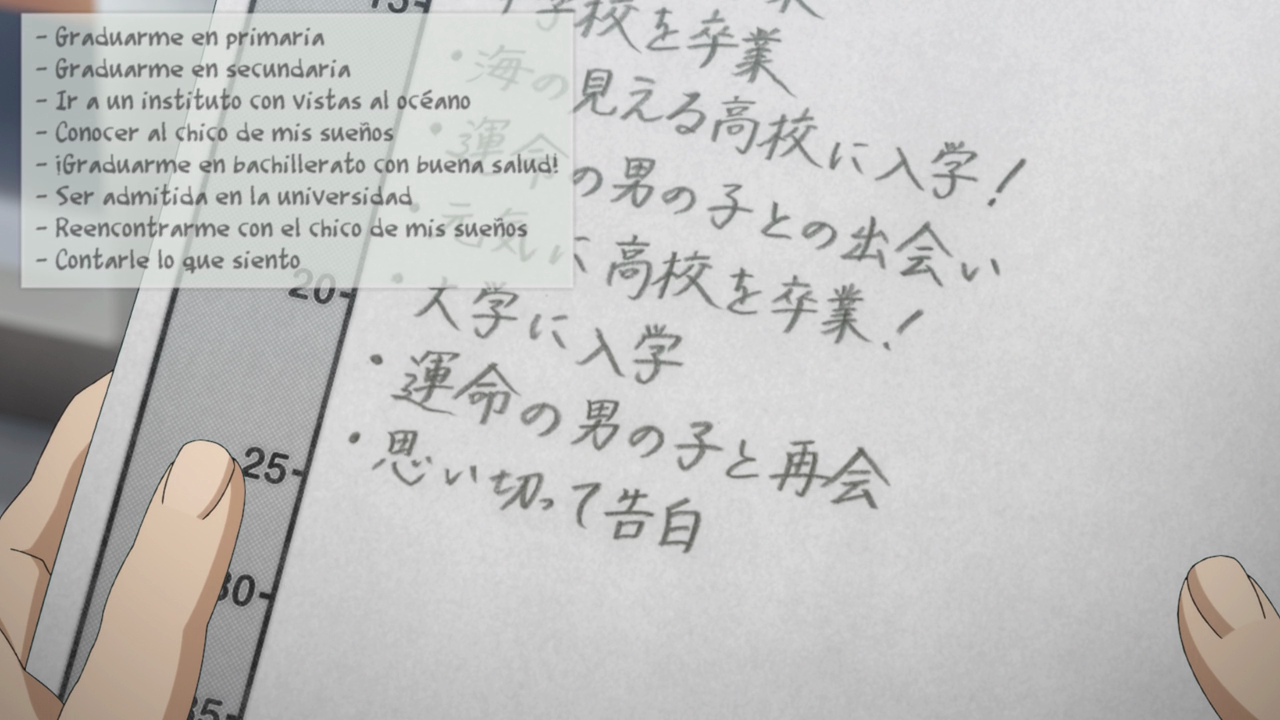 - Graduarme en primaria
- Graduarme en secundaria
- Ir a un instituto con vistas al océano
- Conocer al chico de mis sueños
- ¡Graduarme en bachillerato con buena salud!
- Ser admitida en la universidad
- Reencontrarme con el chico de mis sueños
- Contarle lo que siento
学校を卒業
・海の見える高校に入学!
・運命の男の子との出会い
・元気に高校を卒業!
・大学に入学
・運命の男の子と再会
・思い切って告白
15
20
25
30
35